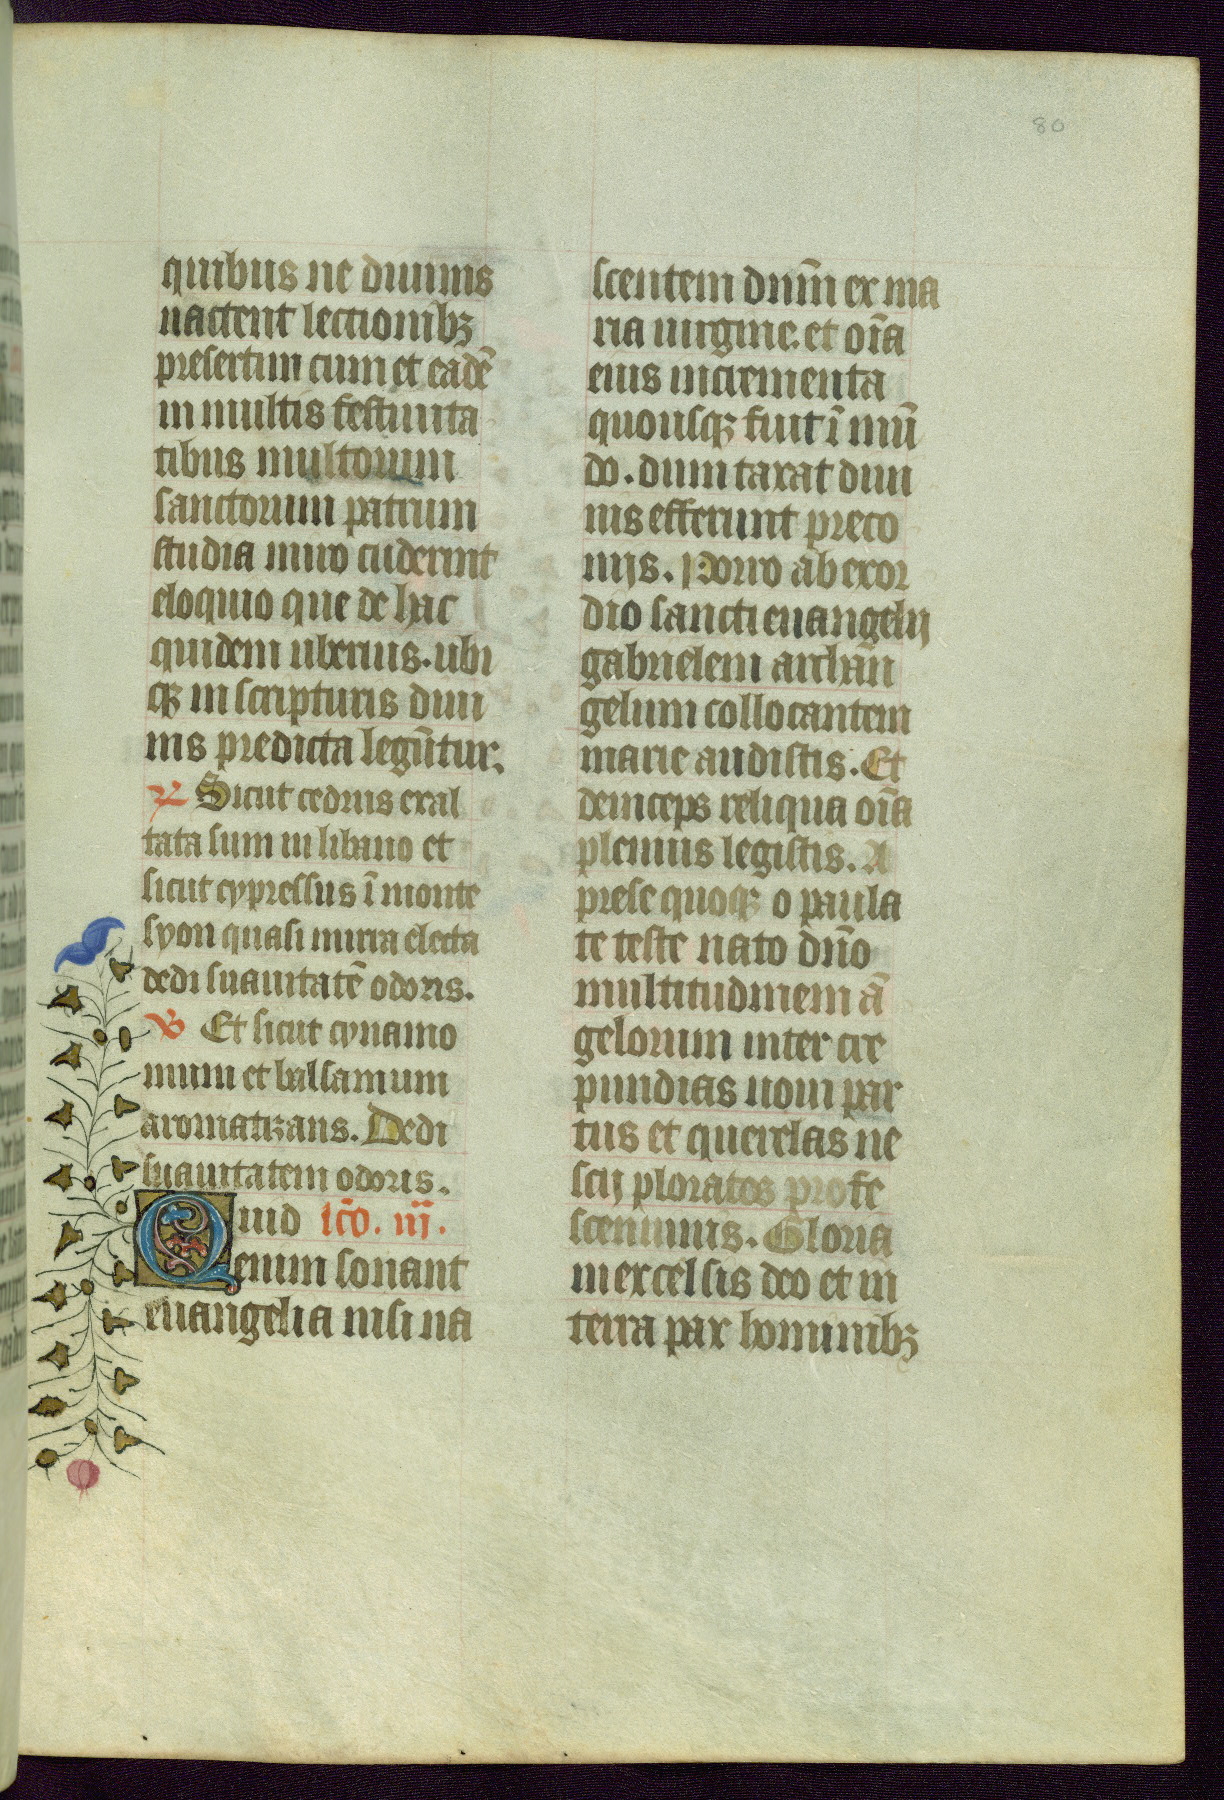 80
quibus ne diuinis
uactent lectionibꝫ
presertim cum et eadē
in multis festiuita
tibus multorum
sanctorum patrum
studia miro cuderint
eloquio que de hac
quidem uberius. ubi
qꝫ in scripturis diui
nis predicta legūtur.
℟ Sicut cedrus exal
tata sum in libano et
sicut cypressus ī monte
syon quasi mirra electa
dedi suauitatē odoris.
℣ Et sicut cynamo
mum et balsamum
aromatizans. Dedi
suauitatem odoris.
Quid lc̄o. iij.
enim sonant
euangelia nisi na
scentem dnm̄ ex ma
ria uirgine. et oīa
eius incrementa
quousqꝫ fuit ī mū
do. dum taxat diui
nis efferunt preco
nijs. Porro ab exor
dio sancti euangelij
gabrielem archan̄
gelum collocantem
marie audistis. Et
deinceps reliqua oīa
plenius legistis. A
prese quoqꝫ o paula
te teste nato dn̄o
multitudinem ā
gelorum inter cre
pundias noui par
tus et querelas ne
scij ploratos profe
scenninis. Gloria
in excelsis deo et in
terra pax hominibꝫ